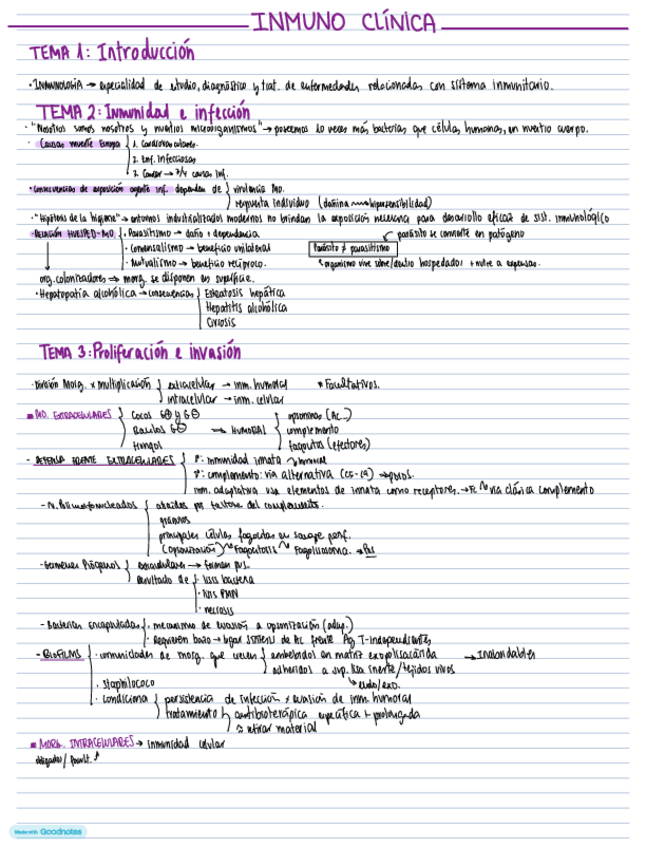 INMUNO CLÍNICA
TEMA 1: Introducción
· INMUNOLOGÍA → especialidad de estudio, diagnóstico y trat. de enfermedades relacionadas con sistema inmunitario.
TEMA 2: Inmunidad e infección
· "Nosotros somos nosotros y nuestros microorganismos" → poseemos 10 veces más bacterias que células humanas, en nuestro cuerpo.
· Causas muerte Europa { 1. Cardiovasculares.
2. Enf. Infecciosas
3. Cáncer → 3/4 causas inf.
· Consecuencias de exposición agente inf. dependen de { virulencia MO.
respuesta individuo (dañina hipersensibilidad)
· "Hipótesis de la higiene" → entornos industrializados modernos no brindan la exposición necesaria para desarrollo eficaz de sist. inmunológico
· RELACIÓN HUÉSPED-MO { · Parasitismo → daño + dependencia parásito se convierte en patógeno
· Comensalismo → beneficio unilateral Parásito ≠ parasitismo
· Mutualismo → beneficio recíproco. organismo vive sobre/dentro hospedador + nutre a expensas.
org. colonizadores → morg. se disponen en superficie.
· Hepatopatía alcohólica → consecuencias { Esteatosis hepática
Hepatitis alcohólica
Cirrosis
TEMA 3: Proliferación e invasión
· División Morg. x multiplicación { extracelular → inm. humoral * Facultativos.
intracelular → inm. celular
MO. EXTRACELULARES { Cocos G⊕ y G⊖ opsoninas (Ac...)
Bacilos G⊖ → HUMORAL { complemento
Hongos fagocitos (efectores)
- DEFENSA FRENTE EXTRACELULARES { 1º: inmunidad innata humoral
2º: complemento: vía alternativa (C5-C9) →
inm. adaptativa usa elementos de innata como receptores. → Fc vía clásica complemento
- N. Polimorfonucleados { atraídos por factores del complemento.
gránulos
principales células fagocitas en sangre perf.
(opsonización) Fagocitosis Fagolisosoma. → Pus
- Gérmenes Piógenos { Extracelulares → forman pus.
Resultado de { · lisis bacteria
· lisis PMN
· necrosis
- Bacterias Encapsuladas { · mecanismo de evasión a opsonización (adap.)
· Requieren bazo → lugar síntesis de Ac frente Ag T-independientes
- BIOFILMS { · comunidades de morg. que crecen { embebidos en matriz exopolisacárida → Inabordables
adheridos a sup. lisa inerte/tejidos vivos
endo/exo.
· Staphilococo
· condiciona { persistencia de infección x evasión de inm. humoral
tratamiento { antibioterápica específica + prolongada
retirar material
MORG. INTRACELULARES → inmunidad celular
obligados / facult.
Made with Goodnotes